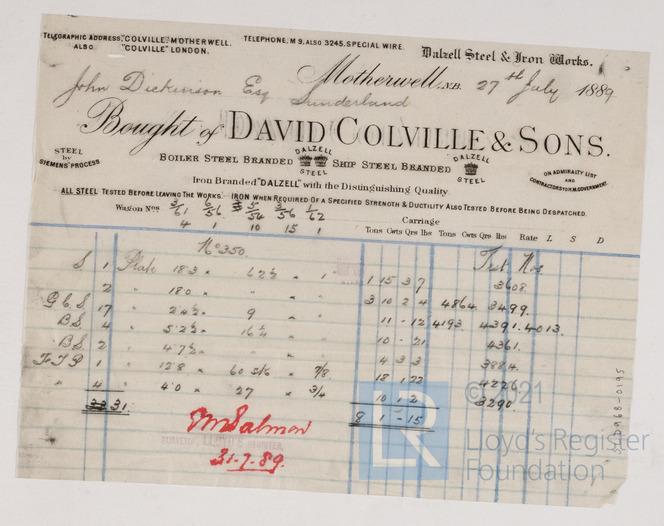 TELEGRAPHIC ADDRESS, "COLVILLE, MOTHERWELL.
ALSO "COLVILLE" LONDON.
TELEPHONE, M 9, ALSO 3245, SPECIAL WIRE.
Dalzell Steel & Iron Works.
Motherwell, N.B. 27th July 1889
John Dickinson Esq
Sunderland
Bought of DAVID COLVILLE & SONS.
STEEL by SIEMENS' PROCESS.
BOILER STEEL BRANDED DALZELL STEEL SHIP STEEL BRANDED DALZELL STEEL
ON ADMIRALTY LIST AND CONTRACTORS TO H.M. GOVERNMENT.
Iron Branded "DALZELL" with the Distinguishing Quality.
ALL STEEL TESTED BEFORE LEAVING THE WORKS. IRON WHEN REQUIRED OF A SPECIFIED STRENGTH & DUCTILITY ALSO TESTED BEFORE BEING DESPATCHED.
Wagon Nos 3/61 6/56 5/54 3/56 1/62
4 1 10 15 1
Carriage
Tons Cwts Qrs lbs Tons Cwts Qrs lbs Rate L S D
No 350. Test Nos.
S 1 Plate 18.3 × 62½ × 1 1 15 3 7 3608
2 18.0 " " " 3 10 2 4 4864 3499.
G.C.S 17 2.4½ " 9 11 - 12 4193 4391. 4013.
B.S. 4 5.2½ " 16½ 10 - 21 4361.
B.S. 2 4.7½ " " 4 3 3 3884
F.T.P 1 12.8 " 60 5/16 " 7/8 18 1 22 4226
" 4 4.0 " 27 " 3/4 10 1 2 3290.
31 8 1 - 15
Salmon
SURVEYOR, LLOYD'S REGISTER,
31-7-89.
© 2021
LR
Lloyd's Register
Foundation